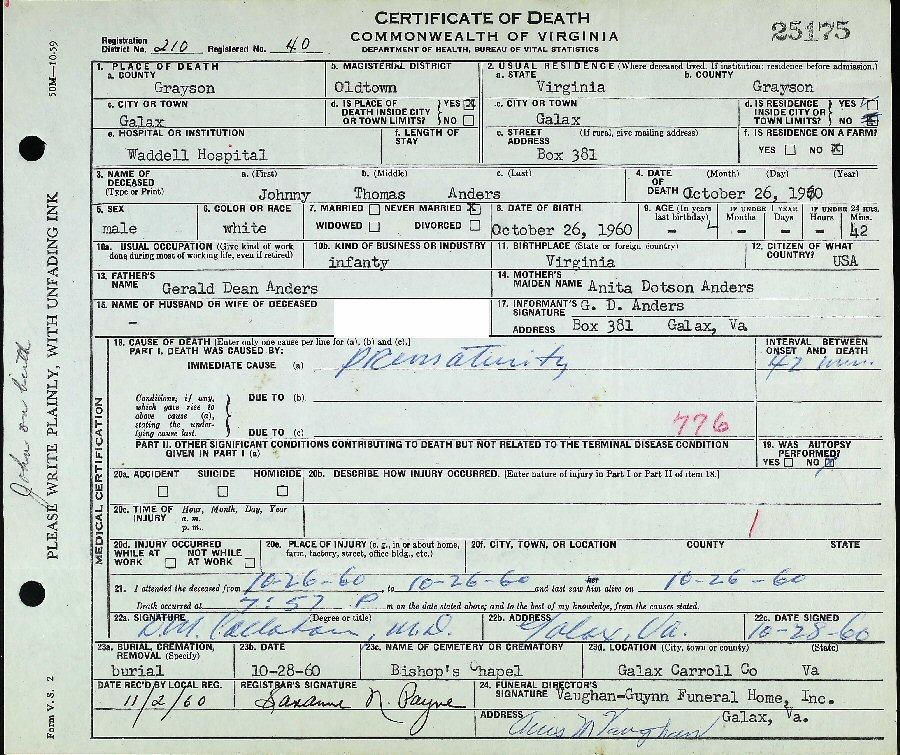 CERTIFICATE OF DEATH
COMMONWEALTH OF VIRGINIA
DEPARTMENT OF HEALTH, BUREAU OF VITAL STATISTICS
25175
Registration District No. 210 Registered No. 40
50M—10-59
1. PLACE OF DEATH
a. COUNTY
Grayson
b. MAGISTERIAL DISTRICT
Oldtown
2. USUAL RESIDENCE (Where deceased lived. If institution: residence before admission.)
a. STATE
Virginia
b. COUNTY
Grayson
c. CITY OR TOWN
Galax
d. IS PLACE OF DEATH INSIDE CITY OR TOWN LIMITS? YES NO
c. CITY OR TOWN
Galax
d. IS RESIDENCE INSIDE CITY OR TOWN LIMITS? YES NO
e. HOSPITAL OR INSTITUTION
Waddell Hospital
f. LENGTH OF STAY
e. STREET ADDRESS (If rural, give mailing address)
Box 381
f. IS RESIDENCE ON A FARM?
YES NO
3. NAME OF DECEASED (Type or Print)
a. (First) b. (Middle) c. (Last)
Johnny Thomas Anders
4. DATE OF DEATH (Month) (Day) (Year)
October 26, 1960
5. SEX
male
6. COLOR OR RACE
white
7. MARRIED NEVER MARRIED
WIDOWED DIVORCED
8. DATE OF BIRTH
October 26, 1960
9. AGE (In years last birthday)
IF UNDER 1 YEAR
Months Days
IF UNDER 24 HRS.
Hours Mins.
– – – – 42
10a. USUAL OCCUPATION (Give kind of work done during most of working life, even if retired)
10b. KIND OF BUSINESS OR INDUSTRY
infanty
11. BIRTHPLACE (State or foreign country)
Virginia
12. CITIZEN OF WHAT COUNTRY?
USA
13. FATHER'S NAME
Gerald Dean Anders
14. MOTHER'S MAIDEN NAME
Anita Dotson Anders
15. NAME OF HUSBAND OR WIFE OF DECEASED
–
17. INFORMANT'S SIGNATURE
G. D. Anders
ADDRESS
Box 381 Galax, Va
18. CAUSE OF DEATH [Enter only one cause per line for (a), (b) and (c).]
PART I. DEATH WAS CAUSED BY:
IMMEDIATE CAUSE (a) prematurity
INTERVAL BETWEEN ONSET AND DEATH
42 min.
Conditions, if any, which gave rise to above cause (a), stating the underlying cause last.
DUE TO (b)
DUE TO (c)
776
PART II. OTHER SIGNIFICANT CONDITIONS CONTRIBUTING TO DEATH BUT NOT RELATED TO THE TERMINAL DISEASE CONDITION GIVEN IN PART I (a)
19. WAS AUTOPSY PERFORMED?
YES NO
20a. ACCIDENT SUICIDE HOMICIDE
20b. DESCRIBE HOW INJURY OCCURRED. [Enter nature of injury in Part I or Part II of item 18.]
20c. TIME OF INJURY Hour, Month, Day, Year
a. m.
p. m.
20d. INJURY OCCURRED
WHILE AT WORK NOT WHILE AT WORK
20e. PLACE OF INJURY (e. g., in or about home, farm, factory, street, office bldg., etc.)
20f. CITY, TOWN, OR LOCATION COUNTY STATE
21. I attended the deceased from 10-26-60, to 10-26-60 and last saw her alive on 10-26-60
Death occurred at 7:57 P m on the date stated above; and to the best of my knowledge, from the causes stated.
22a. SIGNATURE (Degree or title)
M.D.
22b. ADDRESS
Galax, Va.
22c. DATE SIGNED
10-28-60
23a. BURIAL, CREMATION, REMOVAL (Specify)
burial
23b. DATE
10-28-60
23c. NAME OF CEMETERY OR CREMATORY
Bishop's Chapel
23d. LOCATION (City, town or county) (State)
Galax Carroll Co Va
DATE REC'D BY LOCAL REG.
11/2/60
REGISTRAR'S SIGNATURE
N. Payne
24. FUNERAL DIRECTOR'S SIGNATURE
Vaughan-Guynn Funeral Home, Inc.
ADDRESS
Galax, Va.
M Vaughan
MEDICAL CERTIFICATION
PLEASE WRITE PLAINLY, WITH UNFADING INK
John on birth
Form V. S. 2